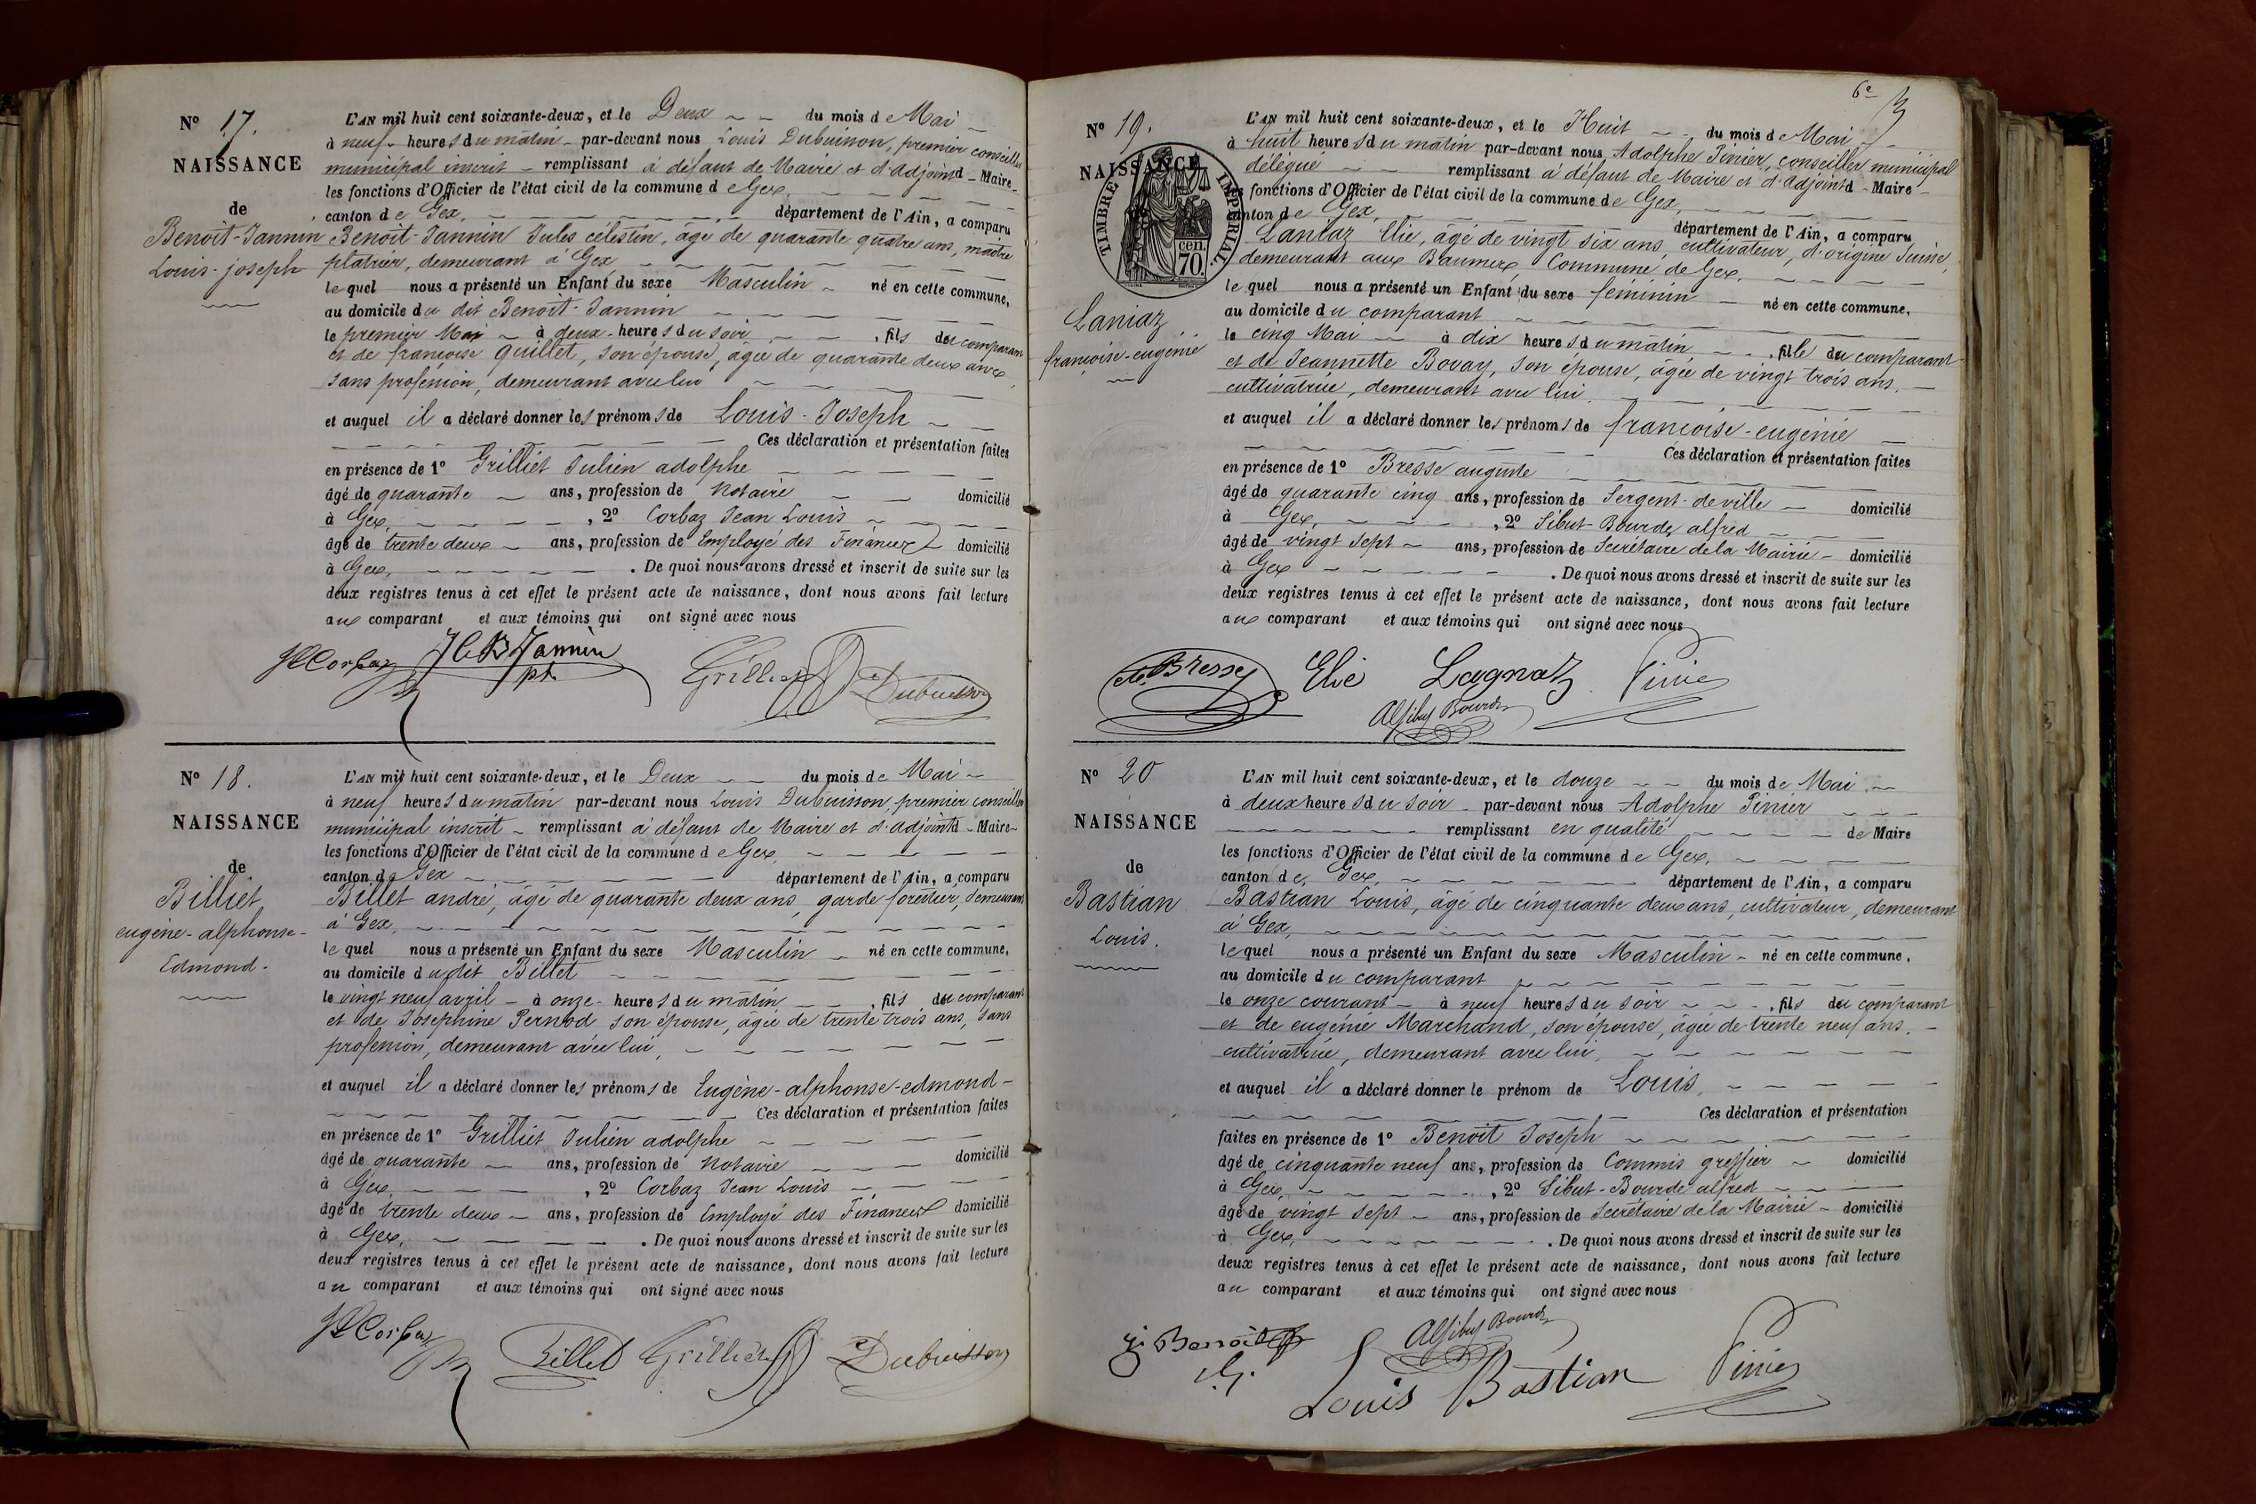 Nº 17.
NAISSANCE
de
Benoit-Jannin
Louis-joseph
L'AN mil huit cent soixante-deux, et le Deux du mois de Mai
à neuf heures du matin par-devant nous Louis Dubuisson, premier conseiller
municipal inscrit remplissant à défaut de Maire et d'adjoint d Maire
les fonctions d'Officier de l'état civil de la commune de Gex,
canton de Gex, département de l'Ain, a comparu
Benoit-Jannin Jules célestin, âgé de quarante quatre ans, maitre
platrier, demeurant à Gex
lequel nous a présenté un Enfant du sexe Masculin né en cette commune,
au domicile du dit Benoit-Jannin
le premier Mai à deux heures du soir, fils du comparant
et de françoise Quillet, son épouse, âgée de quarante deux ans,
sans profession, demeurant avec lui
et auquel il a déclaré donner les prénoms de Louis-Joseph
Ces déclaration et présentation faites
en présence de 1º Grilliet Julien adolphe
âgé de quarante ans, profession de Notaire domicilié
à Gex, , 2º Corbaz Jean Louis
âgé de trente deux ans, profession de Employé des Finances domicilié
à Gex, . De quoi nous avons dressé et inscrit de suite sur les
deux registres tenus à cet effet le présent acte de naissance, dont nous avons fait lecture
aux comparant et aux témoins qui ont signé avec nous
JLCorbaz JCBJannin pt. Grilliet Dubuisson
Nº 18.
NAISSANCE
de
Billiet,
eugène-alphonse-
Edmond.
L'AN mil huit cent soixante-deux, et le Deux du mois de Mai
à neuf heures du matin par-devant nous Louis Dubuisson, premier conseiller
municipal inscrit remplissant à défaut de Maire et d'adjoint d Maire
les fonctions d'Officier de l'état civil de la commune de Gex,
canton de Gex département de l'Ain, a comparu
Billet andré, âgé de quarante deux ans, garde forestier, demeurant
à Gex,
lequel nous a présenté un Enfant du sexe Masculin né en cette commune,
au domicile dudit Billet
le vingt neuf avril à onze heures du matin, fils du comparant
et de Josephine Pernod son épouse, âgée de trente trois ans, sans
profession, demeurant avec lui,
et auquel il a déclaré donner les prénoms de Eugène-alphonse-edmond-
Ces déclaration et présentation faites
en présence de 1º Grilliet Julien adolphe
âgé de quarante ans, profession de Notaire domicilié
à Gex, , 2º Corbaz Jean Louis
âgé de trente deux ans, profession de Employé des Finances domicilié
à Gex, . De quoi nous avons dressé et inscrit de suite sur les
deux registres tenus à cet effet le présent acte de naissance, dont nous avons fait lecture
au comparant et aux témoins qui ont signé avec nous
JLCorbaz Billet Grilliet Dubuisson
6e
Nº 19.
NAISSANCE
TIMBRE IMPÉRIAL
70 cen.
Laniaz
françoise-eugénie
L'AN mil huit cent soixante-deux, et le Huit du mois de Mai
à huit heures du matin par-devant nous Adolphe Pinier, conseiller municipal
délégué remplissant à défaut de Maire et d'adjoint d Maire
fonctions d'Officier de l'état civil de la commune de Gex,
canton de Gex, département de l'Ain, a comparu
Laniaz Elie, âgé de vingt six ans, cultivateur, d'origine Suisse,
demeurant aux Baumex, Commune de Gex,
lequel nous a présenté un Enfant du sexe féminin né en cette commune,
au domicile du comparant
le cinq Mai à dix heures du matin, fille du comparant
et de Jeannette Bovay, son épouse, âgée de vingt trois ans.
cultivatrice, demeurant avec lui.
et auquel il a déclaré donner les prénoms de françoise-eugénie
Ces déclaration et présentation faites
en présence de 1º Bresse auguste
âgé de quarante cinq ans, profession de Sergent-de ville domicilié
à Gex, , 2º Sibut-Bourde alfred
âgé de vingt sept ans, profession de Secrétaire de la Mairie domicilié
à Gex . De quoi nous avons dressé et inscrit de suite sur les
deux registres tenus à cet effet le présent acte de naissance, dont nous avons fait lecture
aux comparant et aux témoins qui ont signé avec nous
Bresse Elie Lagnaz Pinier
ASibut Bourde
Nº 20
NAISSANCE
de
Bastian
Louis.
L'AN mil huit cent soixante-deux, et le douze du mois de Mai
à deux heures du soir par-devant nous Adolphe Pinier
remplissant en qualité de Maire
les fonctions d'Officier de l'état civil de la commune de Gex,
canton de Gex, département de l'Ain, a comparu
Bastian Louis, âgé de cinquante deux ans, cultivateur, demeurant
à Gex,
lequel nous a présenté un Enfant du sexe Masculin né en cette commune,
au domicile du comparant
le onze courant à neuf heures du soir, fils du comparant
et de eugénie Marchand, son épouse, âgée de trente neuf ans.
cultivatrice, demeurant avec lui,
et auquel il a déclaré donner le prénom de Louis,
Ces déclaration et présentation
faites en présence de 1º Benoit Joseph
âgé de cinquante neuf ans, profession de Commis greffier domicilié
à Gex, , 2º Sibut-Bourde alfred
âgé de vingt sept ans, profession de Secrétaire de la Mairie domicilié
à Gex, . De quoi nous avons dressé et inscrit de suite sur les
deux registres tenus à cet effet le présent acte de naissance, dont nous avons fait lecture
au comparant et aux témoins qui ont signé avec nous
Benoit ASibut Bourde
Louis Bastian Pinier